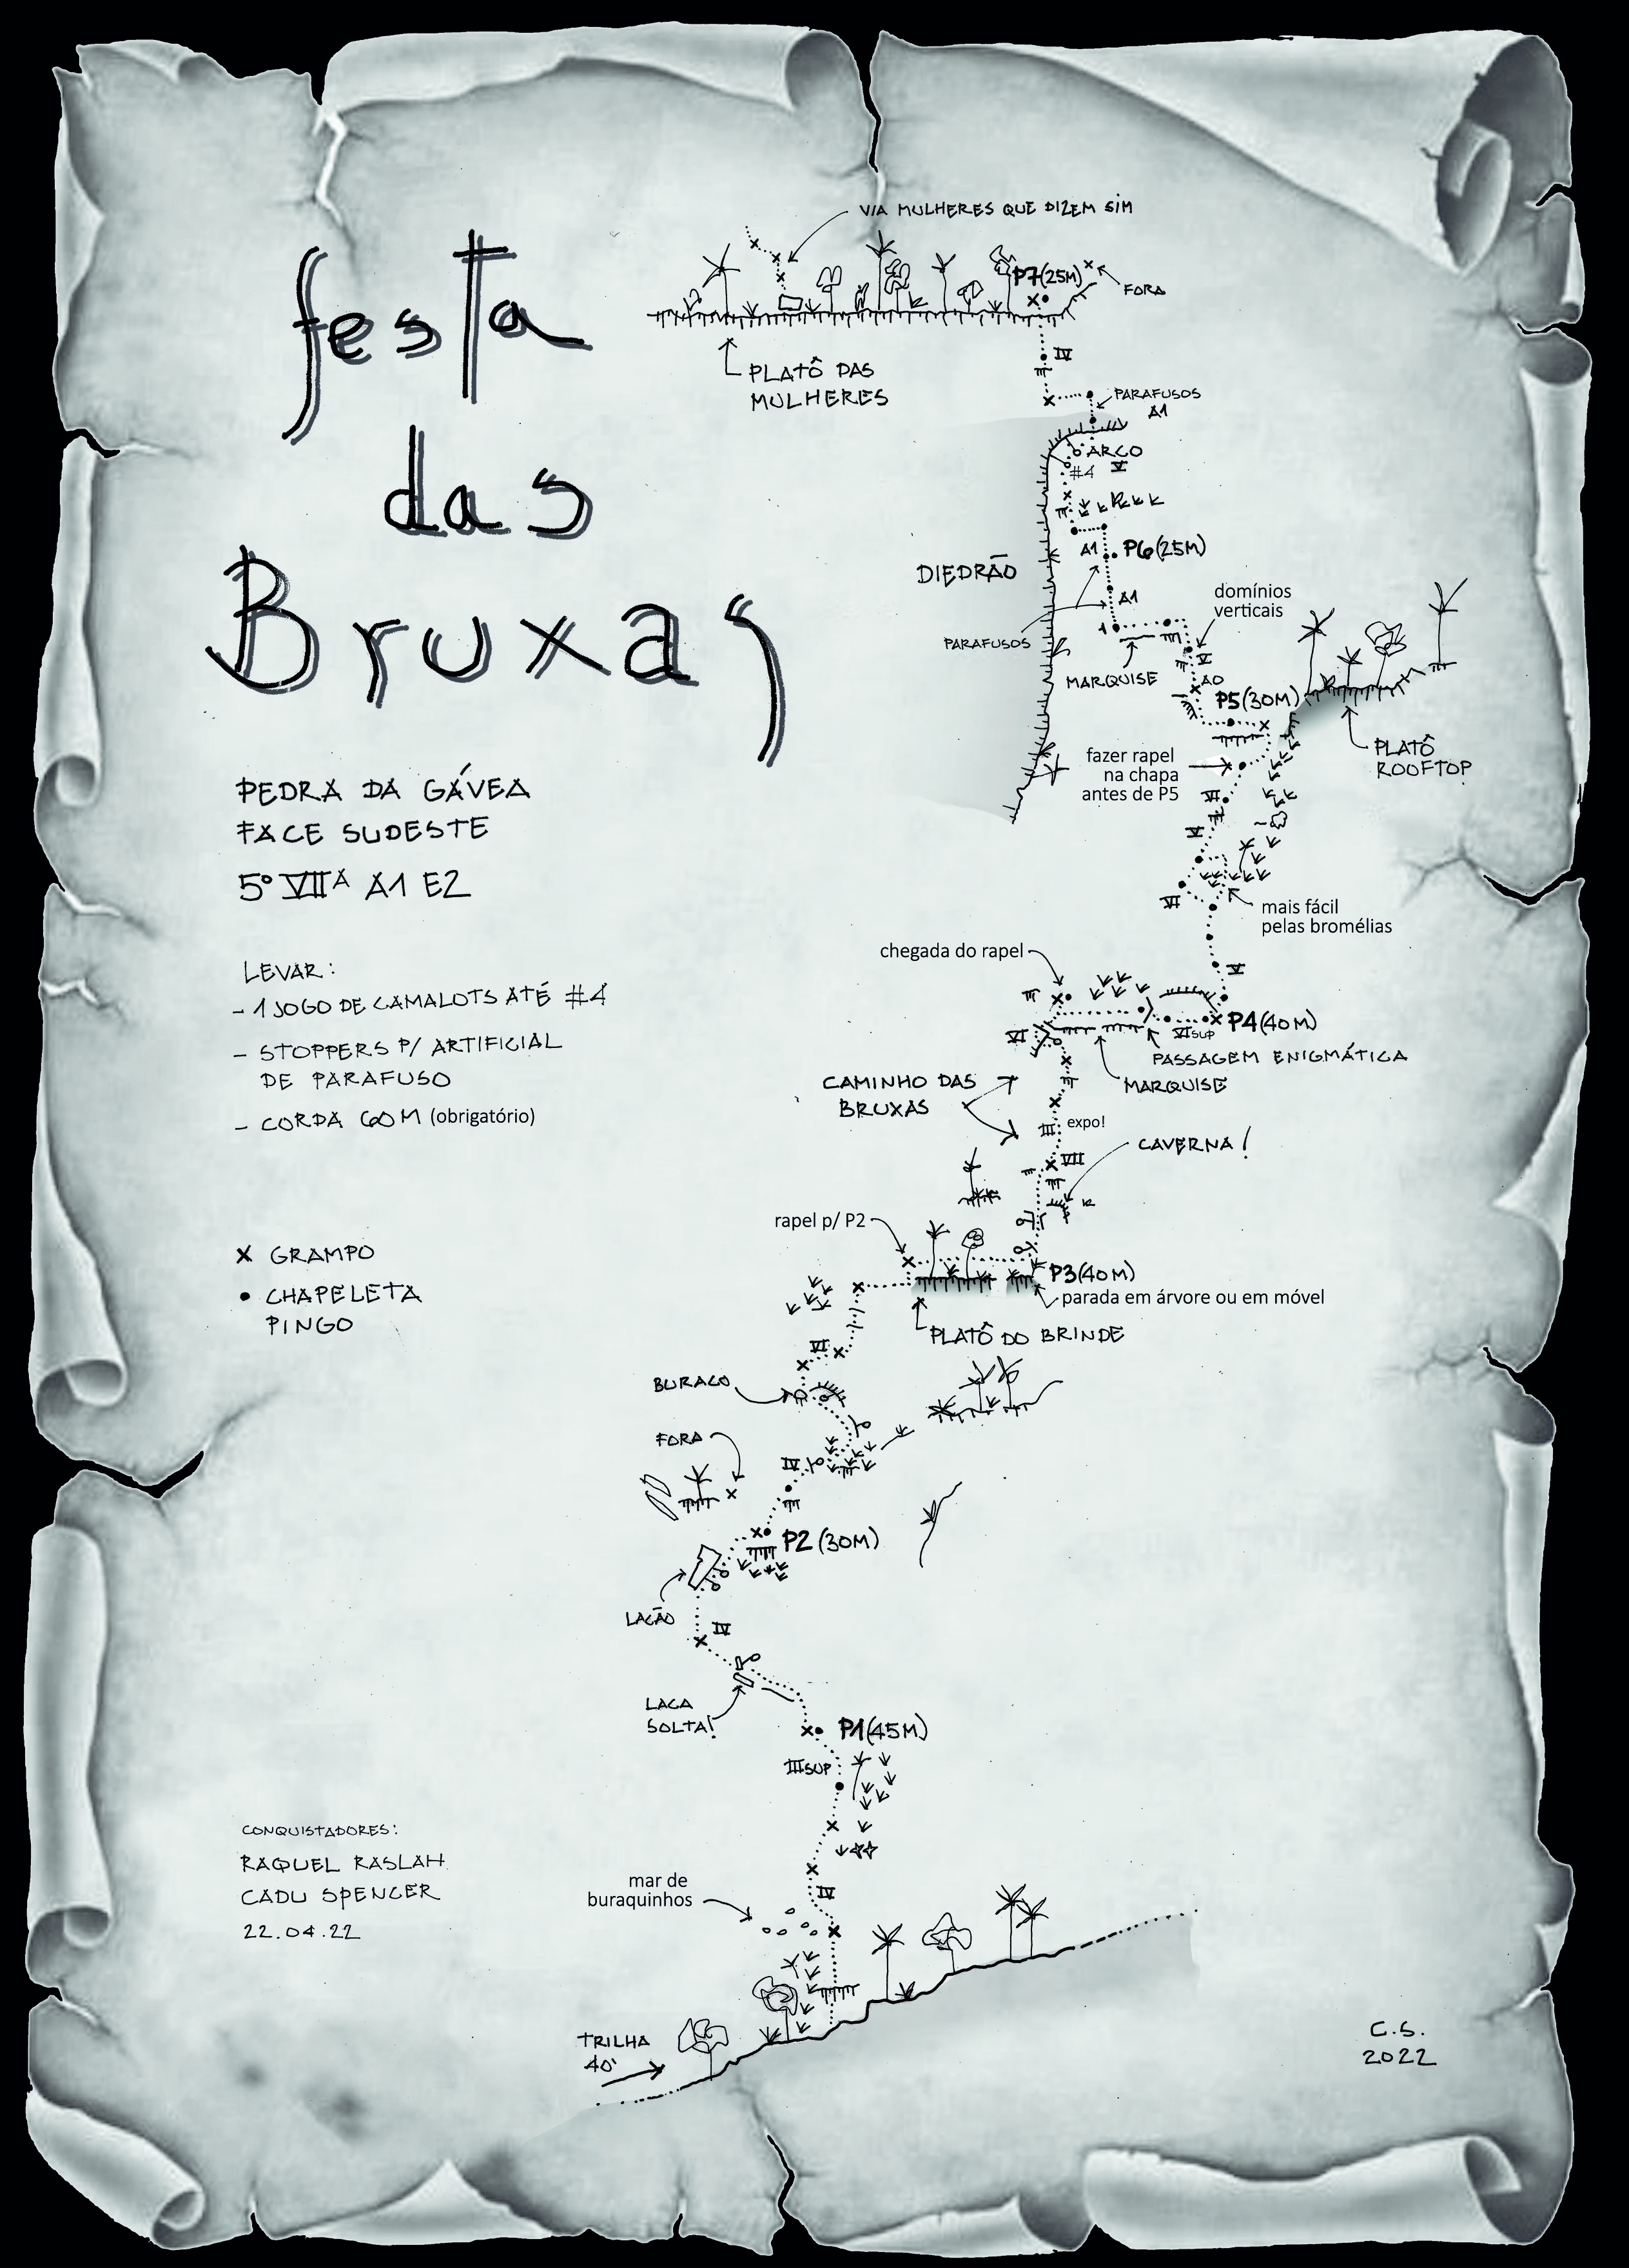 festa
das
Bruxas
PEDRA DA GÁVEA
FACE SUDESTE
5º VIIA A1 E2
LEVAR:
- 1 JOGO DE CAMALOTS ATÉ #4
- STOPPERS P/ ARTIFICIAL
DE PARAFUSO
- CORDA 60M (obrigatório)
x GRAMPO
• CHAPELETA
PINGO
CONQUISTADORES:
RAQUEL RASLAH
CADU SPENCER
22.04.22
VIA MULHERES QUE DIZEM SIM
P7(25M)
FORA
PLATÔ DAS
MULHERES
IV
PARAFUSOS
A1
ARCO
#4 V
A1 P6(25M)
DIEDRÃO
A1
domínios
verticais
PARAFUSOS
MARQUISE
V
A0
P5(30M)
PLATÔ
ROOFTOP
fazer rapel
na chapa
antes de P5
VI
V
VI
mais fácil
pelas bromélias
chegada do rapel
V
P4(40M)
VI
VIsup
PASSAGEM ENIGMÁTICA
MARQUISE
CAMINHO DAS
BRUXAS
III expo!
CAVERNA!
VII
rapel p/ P2
P3(40M)
parada em árvore ou em móvel
PLATÔ DO BRINDE
VI
BURACO
FORA
IV
P2 (30M)
LACÃO
IV
LACA
SOLTA!
P1(45M)
IIISUP
mar de
buraquinhos
IV
TRILHA
40'
C.S.
2022